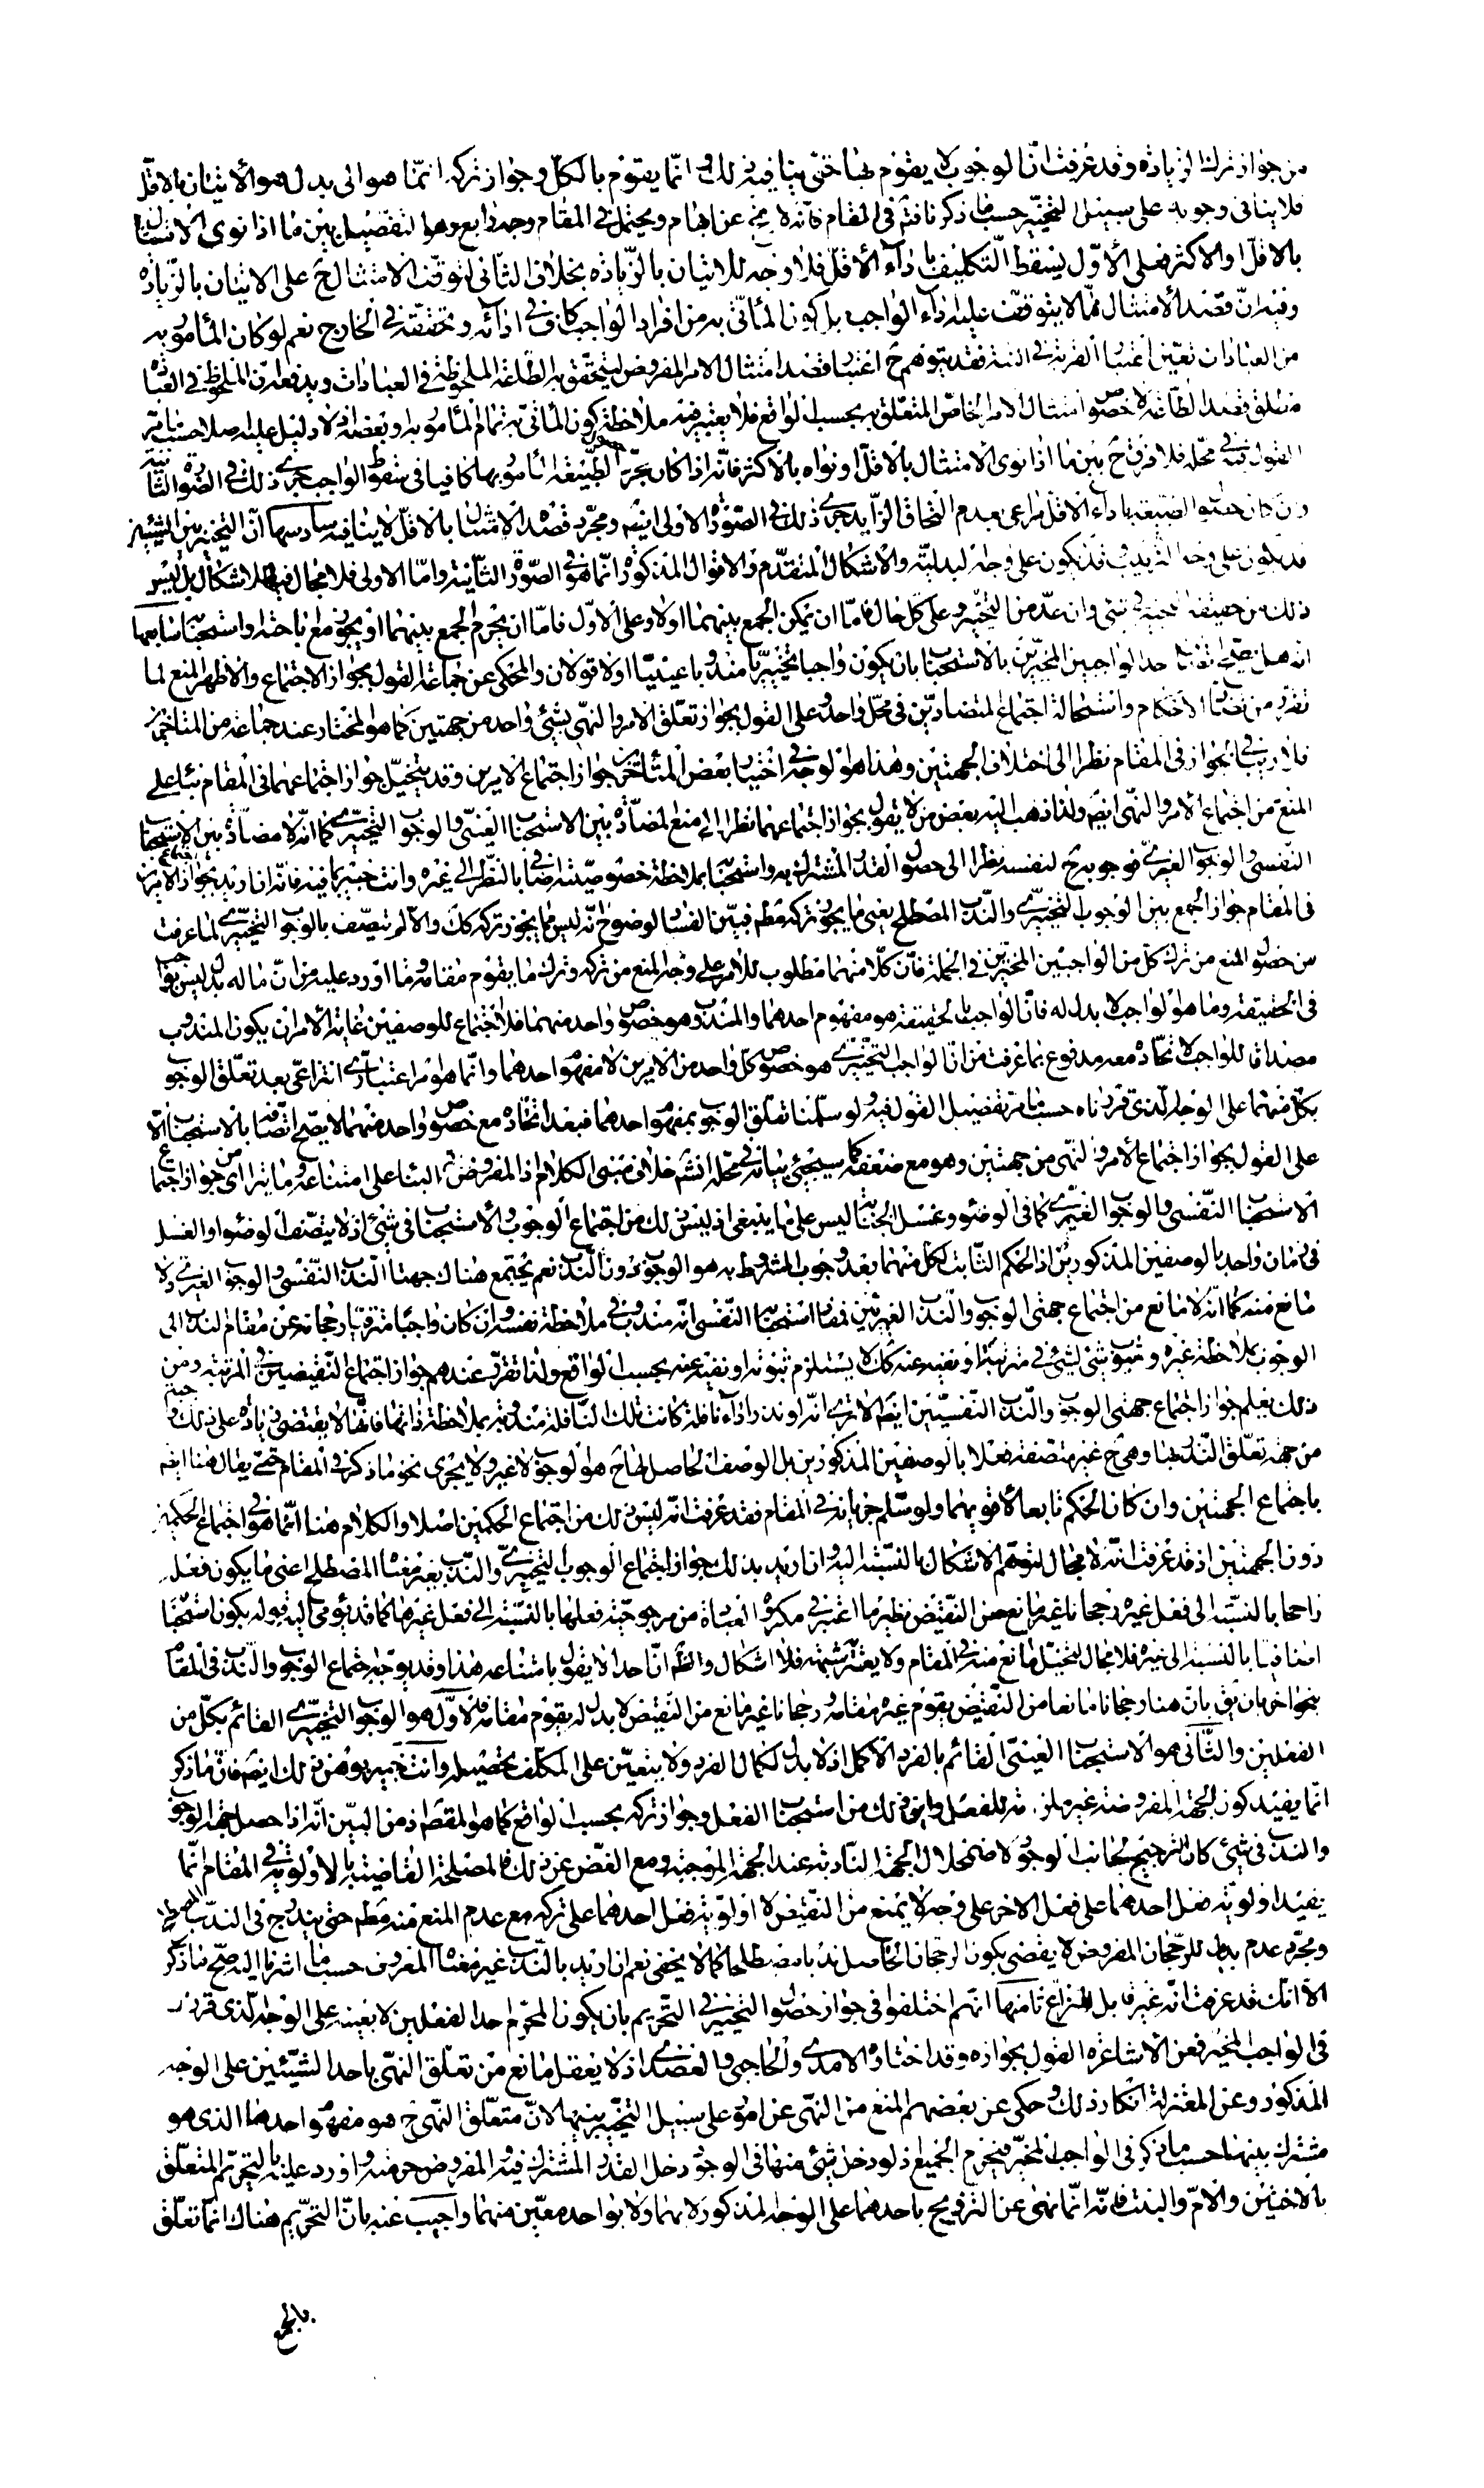 من جواز ترك الزيادة وقد عرفت ان الوجوب لا يقوم بها حتى ينافيه ذلك وانما يقوم بالكل وجواز تركه انما هو الى بدل هو الاتيان بالاقل
فلا ينافى وجوبه على سبيل التخيير حسب ما ذكرنا فتم فى المقام فانه لا يخ عن ابهام ويحتمل فى المقام وجه رابع وهو التفصيل بين ما اذا نوى الامتثال
بالاقل او الاكثر فعلى الاول يسقط التكليف باداء الاقل فلا وجه للاتيان بالزيادة بخلاف الثانى لتوقف الامتثال ح على الاتيان بالزيادة
وفيه ان قصد الامتثال مما لا يتوقف عليه اداء الواجب بل كون المأتى به من افراد الواجب كاف فى ادائه وتحققه فى الخارج نعم لو كان المأمور به
من العبادات تعين اعتبار القربة فى النية فقد يتوهم ح اعتبار قصد امتثال الامر المفروض ليتحقق به الطاعة الملحوظة فى العبادات ويدفعه ان الملحوظ فى العبادة
مطلق قصد الطاعة لا خصوص امتثال الامر الخاص المتعلق به بحسب الواقع فلا يعتبر فيه ملاحظة كون المأتى به تمام المأمور به او بعضه اذ لا دليل عليه اصلا حسب ما مر
القول فيه فى محله فلا فرق ح بين ما اذا نوى الامتثال بالاقل او نواه بالاكثر فانه اذا كان مجرد حصول الطبيعة المأمور بها كافيا فى سقوط الواجب جرى ذلك فى الصورة الثانية
وان كان حصول الطبيعة باداء الاقل مراعى بعدم التحاق الزايد جرى ذلك فى الصورة الاولى ايضا ومجرد قصد الامتثال بالاقل لا ينافيه سادسها ان التخيير بين الشيئين
قد يكون على وجه الترديد وقد يكون على وجه البدلية والاشكال المتقدم والاقوال المذكورة انما هو فى الصورة الثانية واما الاولى فلا مجال فيها للاشكال بل ليس
ذلك من حقيقة التخيير فى شئ وان عد من التخيير وعلى كل حال فاما ان يمكن الجمع بينهما او لا وعلى الاول فاما ان يحرم الجمع بينهما او يجوز مع اباحته او استحبابه سابعها
انه هل يصح اتصاف احد الواجبين المخيرين بالاستحباب بان يكون واجبا تخييريا مندوبا عينيا او لا قولان والمحكى عن جماعة القول بجواز الاجتماع والاظهر المنع لما
تقرر من تضاد الاحكام واستحالة اجتماع المتضادين فى محل واحد وعلى القول بجواز تعلق الامر والنهى بشئ واحد من جهتين كما هو المختار عند جماعة من المتاخرين
فلا ريب فى الجواز فى المقام نظرا الى اختلاف الجهتين وهذا هو الوجه فى اختيار بعض المتأخرين جواز اجتماع الامرين وقد يتخيل جواز اجتماعهما فى المقام بناء على
المنع من اجتماع الامر والنهى ايضا ولذا ذهب اليه بعض من لا يقول بجواز اجتماعهما نظرا الى منع المضادة بين الاستحباب العينى والوجوب التخييرى كما انه لا مضادة بين الاستحباب
النفسى والوجوب الغيرى فوجوبه ح لنفسه نظرا الى حصول القدر المشترك به واستحبابه بملاحظة خصوصيته ضافيا بالنظر الى غيره وانت خبير بما فيه فانه ان اريد بجواز اجتماع الامرين
فى المقام جواز الجمع بين الوجوب التخييرى والندب المصطلح يعنى ما يجوز تركه مط فبين الفساد لوضوح انه ليس مما يجوز تركه كك والا لم يتصف بالوجوب التخييرى لما عرفت
من حصول المنع من ترك كل من الواجبين المخيرين فى الجملة فان كلا منهما مطلوب للامر على وجه المنع من تركه وترك ما يقوم مقامه وما اورد عليه من ان ما له بدل ليس بواجب
فى الحقيقة وما هو الواجب لا بدل له فان الواجب بالحقيقة هو مفهوم احدهما والمندوب هو خصوص واحد منهما فلا اجتماع للوصفين غاية الامر ان يكون المندوب
مصداقا للواجب لاتحاده معه مدفوع بما عرفت من ان الواجب التخييرى هو خصوص كل واحد من الامرين لا مفهوم احدهما وانما هو امر اعتبارى انتزاعى بعد تعلق الوجوب
بكل منهما على الوجه الذى قررناه حسب ما مر تفصيل القول فيه ولو سلمنا تعلق الوجوب بمفهوم احدهما فبعد اتحاده مع خصوص واحد منهما لا يصح اتصافه بالاستحباب الا
على القول بجواز اجتماع الامر والنهى من جهتين وهو مع ضعفه كما سيجئ بيانه فى محله انشم خلاف مبنى الكلام اذ المفروض البناء على امتناعه وما يترائى من جواز اجتماع
الاستحباب النفسى والوجوب الغيرى كما فى الوضوء وغسل الجنابة ليس على ما ينبغى اذ ليس ذلك من اجتماع الوجوب والاستحباب فى شئ اذ لا يتصف الوضوء او الغسل
فى زمان واحد بالوصفين المذكورين اذ الحكم الثابت لكل منهما بعد وجوب المشروط به هو الوجوب دون الندب نعم يجتمع هناك جهتا الندب النفسى والوجوب الغيرى ولا
مانع منه كما انه لا مانع من اجتماع جهتى الوجوب والندب الغيريين فمفاد استحبابه النفسى انه مندوب فى ملاحظة نفسه وان كان واجبا مترقيا رجحانه عن مقام الندب الى
الوجوب بملاحظة غيره وثبوت شئ لشئ فى مرتبة او نفيه عنه كك لا يستلزم ثبوته او نفيه عنه بحسب الواقع ولذا تقرر عندهم جواز اجتماع النقيضين فى المرتبة ومن
ذلك يعلم جواز اجتماع جهتى الوجوب والندب النفسيين ايضا الا ترى انه لو نذر اداء نافلة كانت تلك النافلة مندوبة بملاحظة ذاتها فانها لا يقتضى زيادة على ذلك واجبة
من جهة تعلق النذر بها وهى ح غير متصفة فعلا بالوصفين المذكورين بل الوصف الحاصل لها ح هو الوجوب لا غير ولا يجرى نحو ما ذكر فى المقام حتى يقال هنا ايضا
باجتماع الجهتين وان كان الحكم تابعا لاقويهما ولو سلم جريانه فى المقام فقد عرفت انه ليس ذلك من اجتماع الحكمين اصلا والكلام هنا انما هو فى اجتماع الحكمين
دون الجهتين اذ قد عرفت انه لا مجال لتوهم الاشكال بالنسبة اليه وان اريد بذلك جواز اجتماع الوجوب التخييرى والندب بغير معناه المصطلح اعنى ما يكون فعله
راجحا بالنسبة الى فعل غيره رجحانا غير مانع من النقيض نظير ما اعتبر فى مكروه العبادة من مرجوحية فعلها بالنسبة الى فعل غيرها كما قد يؤمى اليه قوله يكون استحبابا
اضافيا بالنسبة الى غيره فلا مجال لتخيل مانع منه فى المقام ولا يعتريه شبهة فلا اشكال والظ ان احدا لا يقول بامتناعه هذا وقد يوجه اجتماع الوجوب والندب فى المقام
بنحو اخر بان يق بان هنا رجحانا مانعا من النقيض يقوم غيره مقامه ورجحانا غير مانع من النقيض لا بدل له يقوم مقامه فالاول هو الوجوب التخييرى القائم بكل من
الفعلين والثانى هو الاستحباب العينى القائم بالفرد الاكمل اذ لا بدل لكمال الفرد ولا يتعين على المكلف تحصيله وانت خبير بوهن ذلك ايضا فان ما ذكر
انما يفيد كون الجهة المفروضة غير ملزمة للفعل واين ذلك من استحباب الفعل وجواز تركه بحسب الواقع كما هو المقصد اذ من البين انه اذا حصل جهة الوجوب
والندب فى شئ كان الترجيح لجانب الوجوب لاضمحلال الجهة النادبة عند الجهة الموجبة ومع الغض عن ذلك فالمصلحة القاضية بالاولوية فى المقام انما
يفيد اولوية فعل احدهما على فعل الاخر على وجه لا يمنع من النقيض لا اولوية فعل احدهما على تركه مع عدم المنع منه مط حتى يندرج فى الندب المصطلح
ومجرد عدم بدل للرجحان المفروض لا يقضى بكون الرجحان الحاصل ندبا مصطلحا كما لا يخفى نعم ان اريد بالندب غير معناه المعروف حسب ما اشرنا اليه صح ما ذكر
الا انك قد عرفت انه غير قابل للنزاع ثامنها انهم اختلفوا فى جواز حصول التخيير فى التحريم بان يكون المحرم احد الفعلين لا بعينه على الوجه الذى قرر
فى الواجب المخير فعن الاشاعرة القول بجوازه وقد اختاره الامدى والحاجبى والعضدى اذ لا يعقل مانع من تعلق النهى باحد الشيئين على الوجه
المذكور وعن المعتزلة انكار ذلك وحكى عن بعضهم المنع من النهى عن امور على سبيل التخيير بينها لان متعلق النهى ح هو مفهوم احدهما الذى هو
مشترك بينهما حسب ما ذكر فى الواجب المخير فيحرم الجميع اذ لو دخل شئ منها فى الوجود دخل القدر المشترك فيه والمفروض حرمته واورد عليه بالتحريم المتعلق
بالاختين والام والبنت فانه انما نهى عن التزويج باحدهما على الوجه المذكور لا بهما ولا بواحد معين منهما واجيب عنه بان التحريم هناك انما تعلق
بالجمع